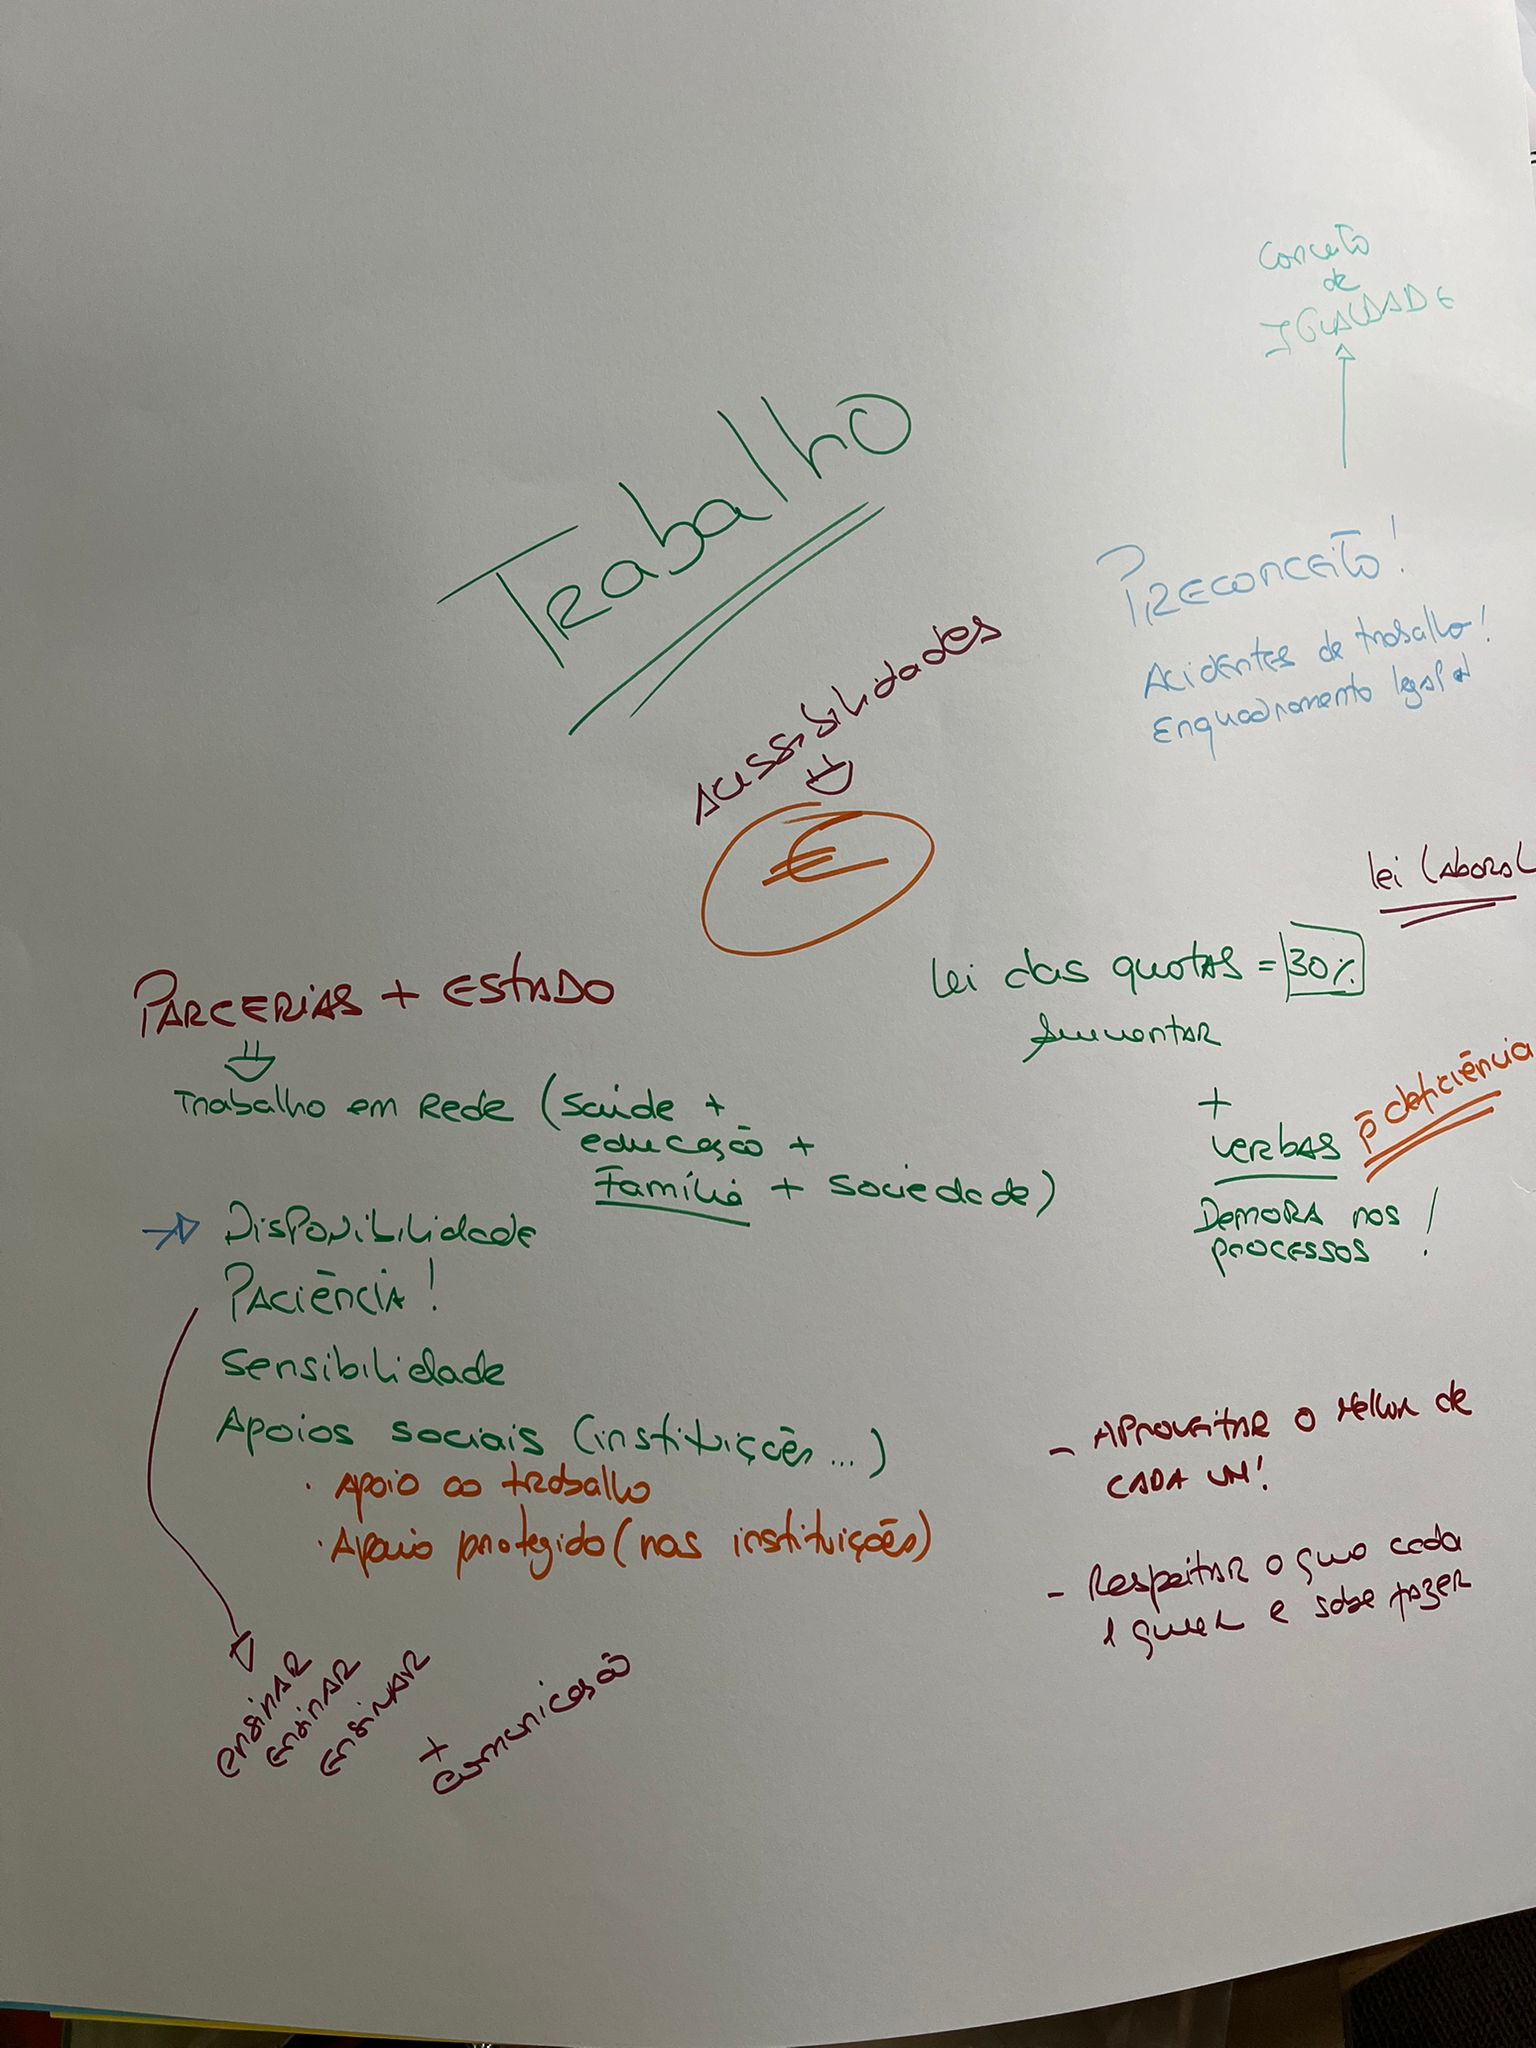 Conceito
de
IGUALDADE
Trabalho
PRECONCEITO!
Acidentes de trabalho!
Enquadramento legal
Acessibilidades
€
lei laboral
lei das quotas = 30%
Aumentar
PARCERIAS + ESTADO
Trabalho em Rede (saúde +
educação +
Família + sociedade)
+
verbas p̄ deficiência
DEMORA nos
processos !
Disponibilidade
Paciência!
Sensibilidade
Apoios sociais (instituições...)
· Apoio ao trabalho
· Apoio protegido (nas instituições)
- Aproveitar o melhor de
cada um!
- Respeitar o que cada
1 quer e sabe fazer
ensinar
ensinar
ensinar
+
comunicação